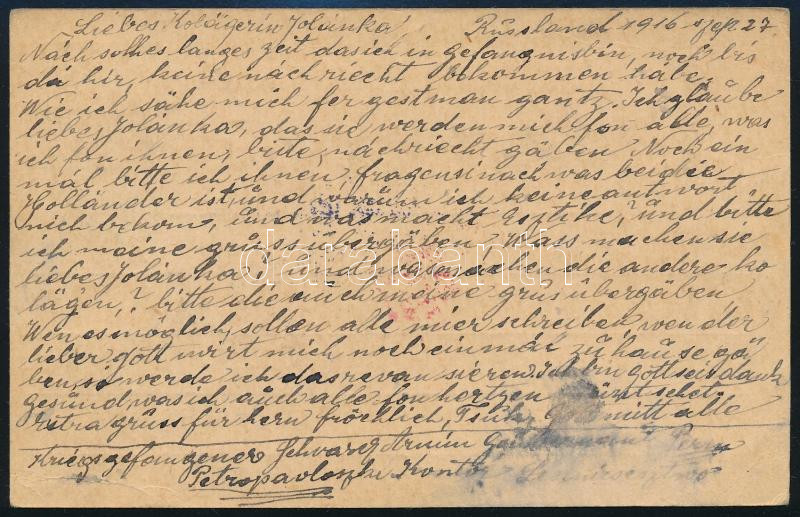 Liebes Kolägerin Jolánka! Russland 1916 szep. 27.
Nach solhes langes zeit das ich in gefangnis bin, noch bis
da hir, keine nachriecht bekommen habe.
Wie ich sähe mich fergest man gantz. Ich glaube
liebes Jolánka, das sie werden mich fon alle, was
ich fon ihnen, bitte, nachriecht gäben. Noch ein
mal bitte ich ihnen, fragen si nach was bei die
Holländer ist, ünd warüm ich keine antwort
nich bekom, ünd was macht Esztike, ünd bitte
ich meine grüss übergäben. Wass machen sie
liebes Jolánka? ünd was machen die andere ko
lägen? bitte die auch meine grüs übergäben
Wen es möglich, sollen alle mier schreiben, wen der
lieber gott wirt mich noch ein mal zu hause gä
ben, si werde ich das revansieren. Ich bin gott sei dank
gesünd, was ich auch alle fon hertzen
extra grüss für hern fröchlich, mitt alle
Kriegsgefangener Schvarcz Armin Perm
Petropavloszki Kontor
darabanth